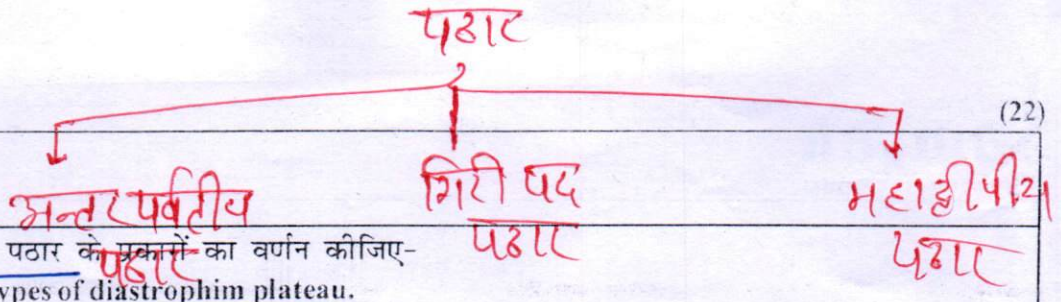 पठार
(22)
अन्तर पर्वतीय गिरी पद महाद्वीपीय
पठार पठार पठार
पठार के प्रकारों का वर्णन कीजिए-
ypes of diastrophim plateau.